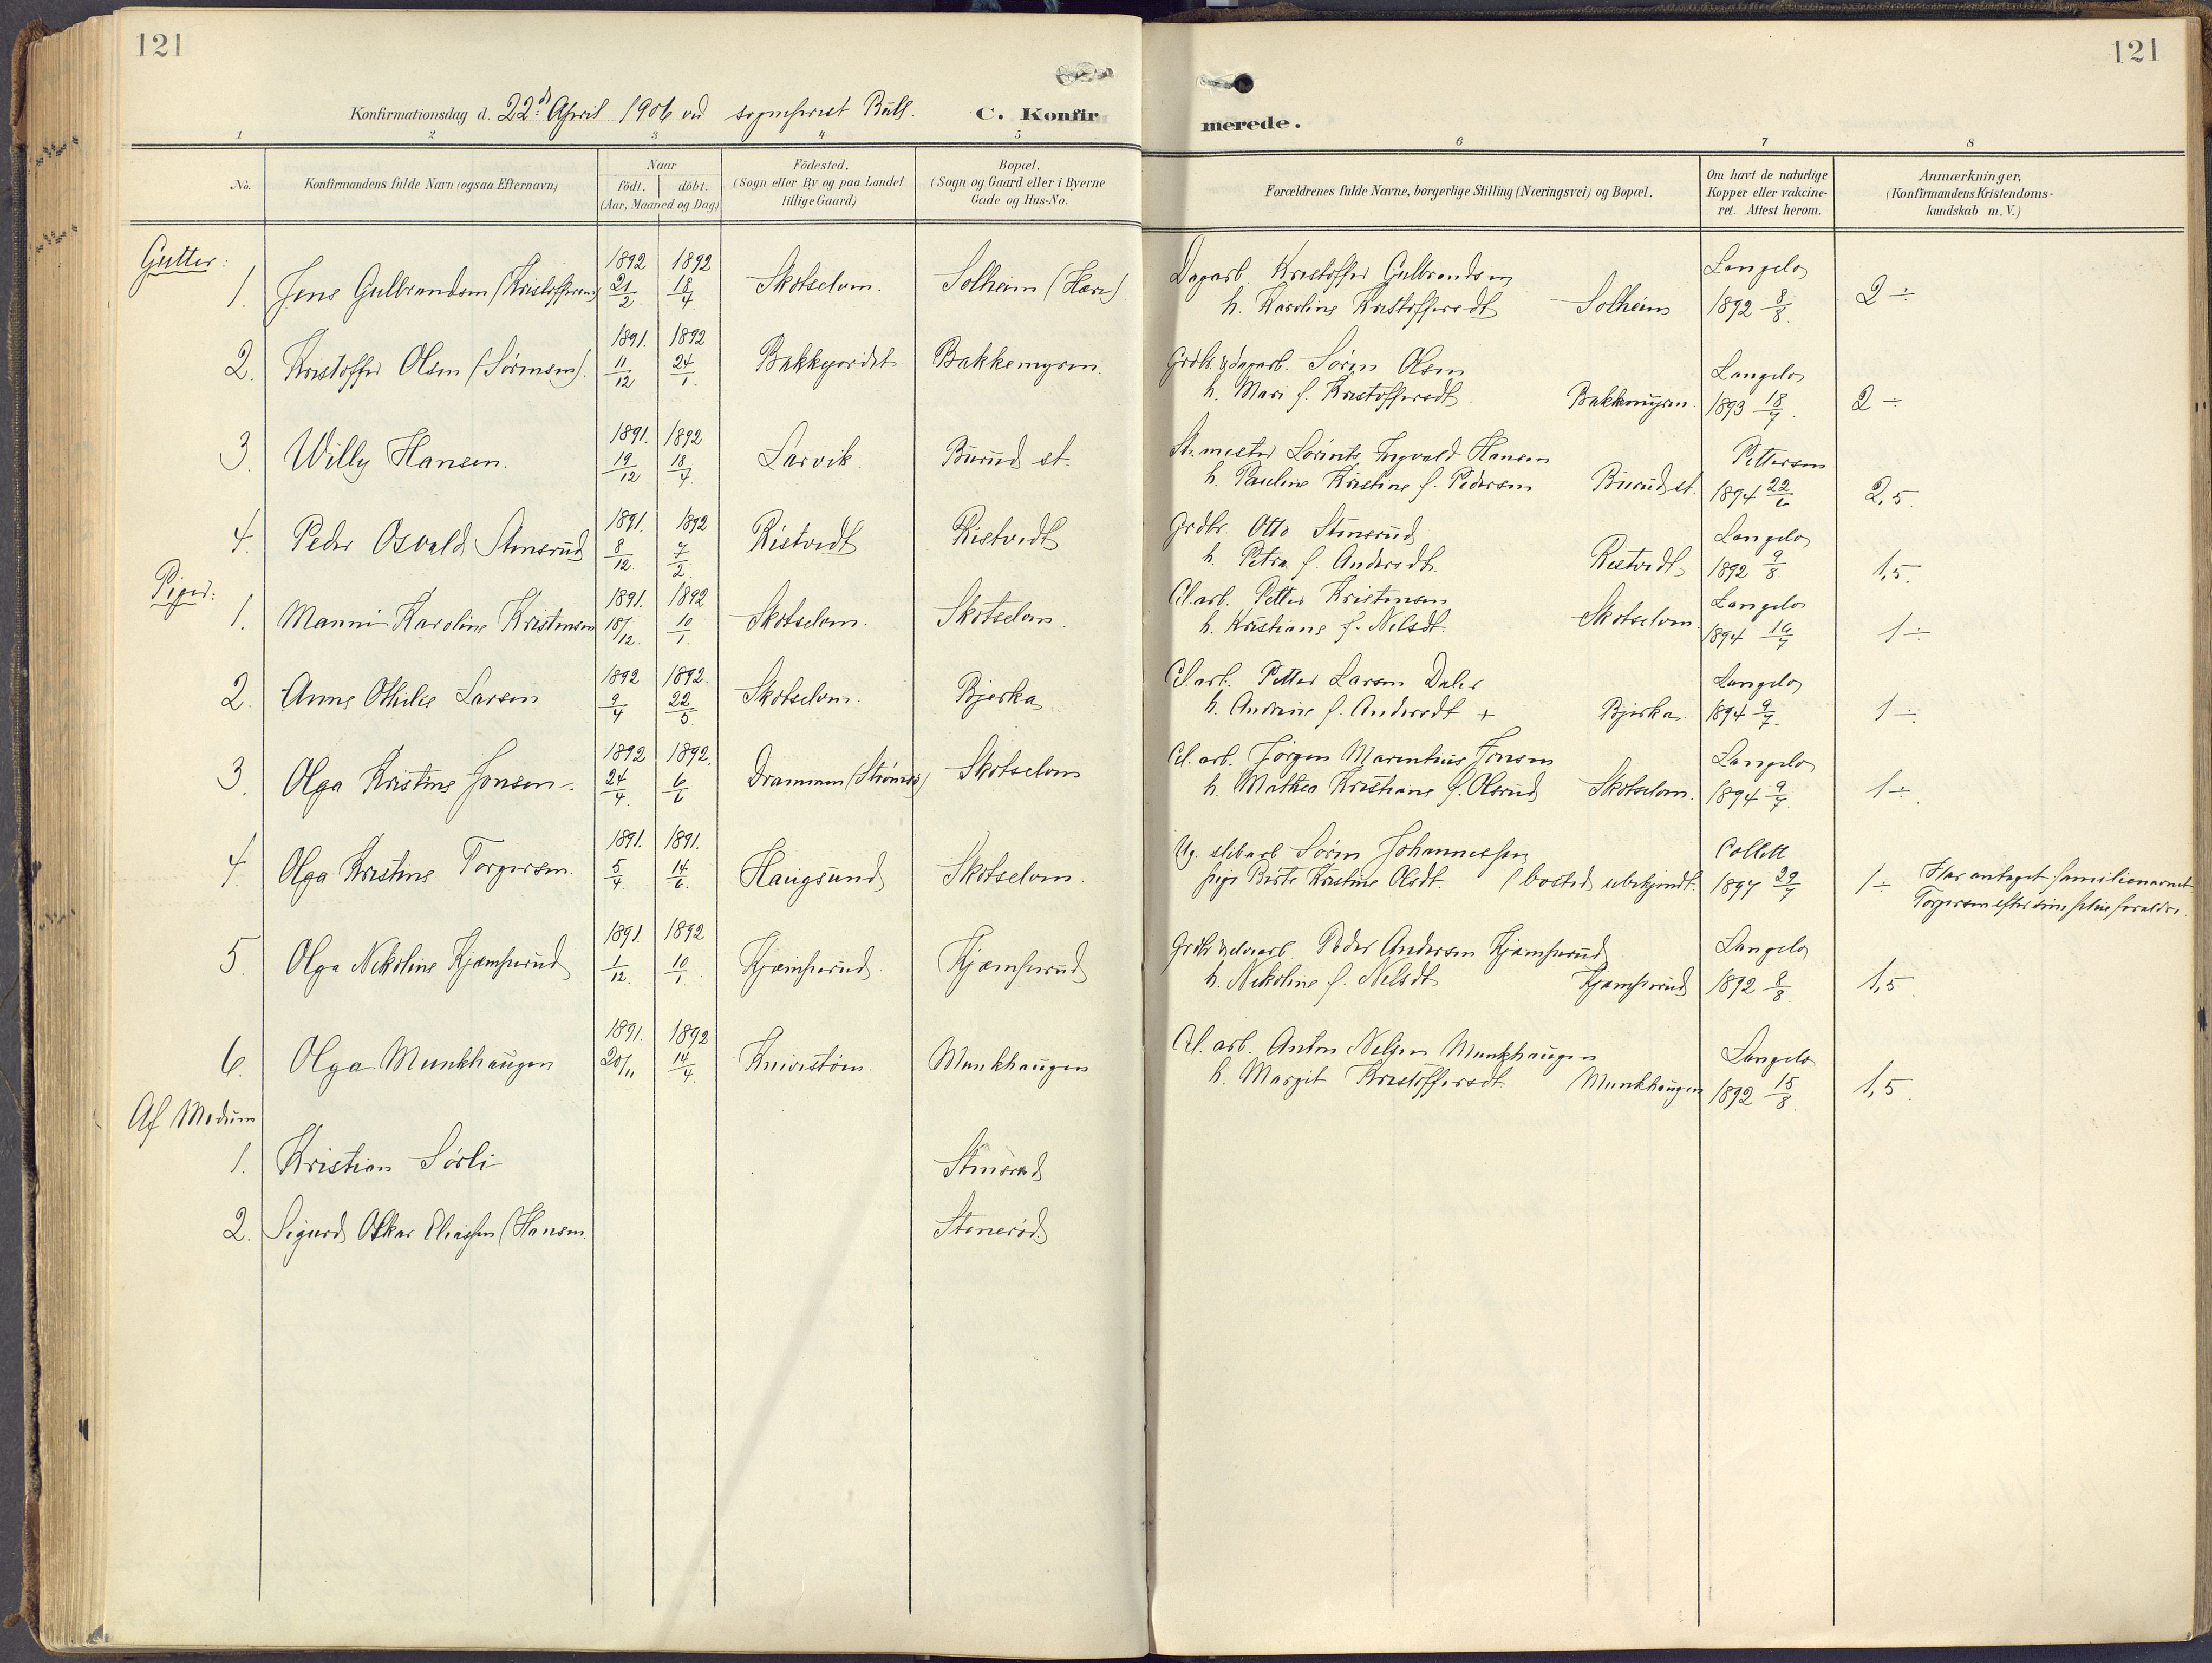 121
121
Konfirmationsdag d. 22d April 1906 ved sogneprest Bull.
C. Konfir
merede.
1 2 3 4 5 6 7 8
No.
Konfirmandens fulde Navn (ogsaa Efternavn)
Naar
födt. döbt.
(Aar, Maaned og Dag)
Födested.
(Sogn eller By og paa Landet
tillige Gaard)
Bopæl.
(Sogn og Gaard eller i Byerne
Gade og Hus-No.
Forældrenes fulde Navne, borgerlige Stilling (Næringsvei) og Bopæl.
Om havt de naturlige
Kopper eller vakcine-
ret. Attest herom.
Anmærkninger,
(Konfirmandens Kristendoms-
kundskab m. V.)
Gutter:
1. Jens Gulbrandsen (Kristoffersen) 1892 21/2 1892 18/4 Skotselven. Solheim
Dagarb. Kristoffer Gulbrandsen
h. Karoline Kristoffersdt Solheim
Langelo 1892 8/8. 2 ÷
2. Kristoffer Olsen (Sørensen). 1891. 11/12 1892 24/1. Bakkejordet Bakkemyren.
Grdbr. & dagarb. Søren Olsen
h. Mari f. Kristoffersdt. Bakkemyren.
Langelo 1893 18/7. 2 ÷
3. Willy Hansen. 1891. 19/12 1892 18/4. Larvik Burud st.
St.mester Lorints Ingvald Hansen
h. Pauline Kristine f. Pedersen Burud st.
Pettersen 1894 22/6 2,5.
4. Peder Osvald Stenerud 1891. 8/12. 1892 7/2 Ristvedt Ristvedt
Grdbr. Otto Stenerud
h. Petra f. Andersdt. Ristvedt
Langelo 1892 9/8. 1,5.
Piger:
1. Manni Karoline Kristensen 1891. 18/12. 1892 10/1. Skotselven. Skotselven.
Cl.arb. Petter Kristensen
h. Kristiane f. Nilsdt. Skotselven.
Langelo 1894 16/7 1 ÷
2. Anne Othilie Larsen 1892 9/4 1892. 22/5 Skotselven. Bjerka
Cl.arb. Petter Larsen Daler
h. Andrine f. Andersdt + Bjerka
Langelo 1894 9/7. 1 ÷
3. Olga Kristine Jonsen. 1892 24/4. 1892. 6/6 Drammen (Strømsø) Skotselven
Cl. arb. Jørgen Marentius Jonsen
h. Mathea Kristiane f. Olsrud Skotselven.
Langelo 1894 9/7. 1 ÷
4. Olga Kristine Torgersen. 1891. 5/4. 1891. 14/6. Haugsund Skotselven.
Ug. slibarb Søren Johannessen
pige Berte Kristine Olsdt. (bosted ubekjendt.
Collett 1897 29/7 1 ÷ Har antaget familienavnet
Torgersen efter sine pleieforældre.
5. Olga Nekoline Kjæmperud 1891. 1/12. 1892 10/1. Kjæmperud. Kjæmperud
Grdbr. & elvearb. Peder Andersen Kjæmperud
h. Nekoline f. Nilsdt Kjæmperud
Langelo 1892 8/8. 1,5.
6. Olga Munkhaugen 1891. 20/11 1892 14/4. Knivestøen. Munkhaugen
Cl. arb. Anton Nelsen Munkhaugen
h. Margit Kristoffersdt Munkhaugen
Langelo 1892 15/8. 1,5.
Af Modum
1. Kristian Sørli Stenerud
2. Sigurd Oskar Eliassen (Hansen Stenerød